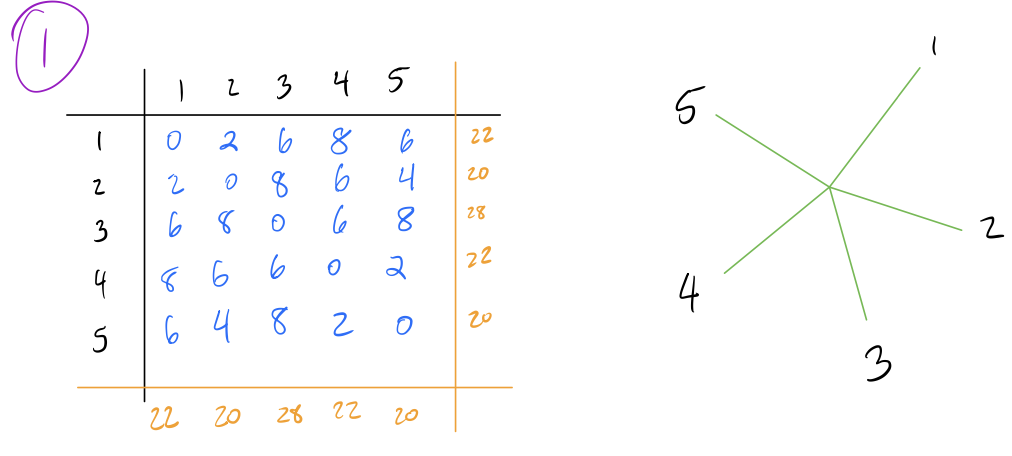 1
1 2 3 4 5
1 0 2 6 8 6 22
2 2 0 8 6 4 20
3 6 8 0 6 8 28
4 8 6 6 0 2 22
5 6 4 8 2 0 20
22 20 28 22 20
1
5
2
4
3